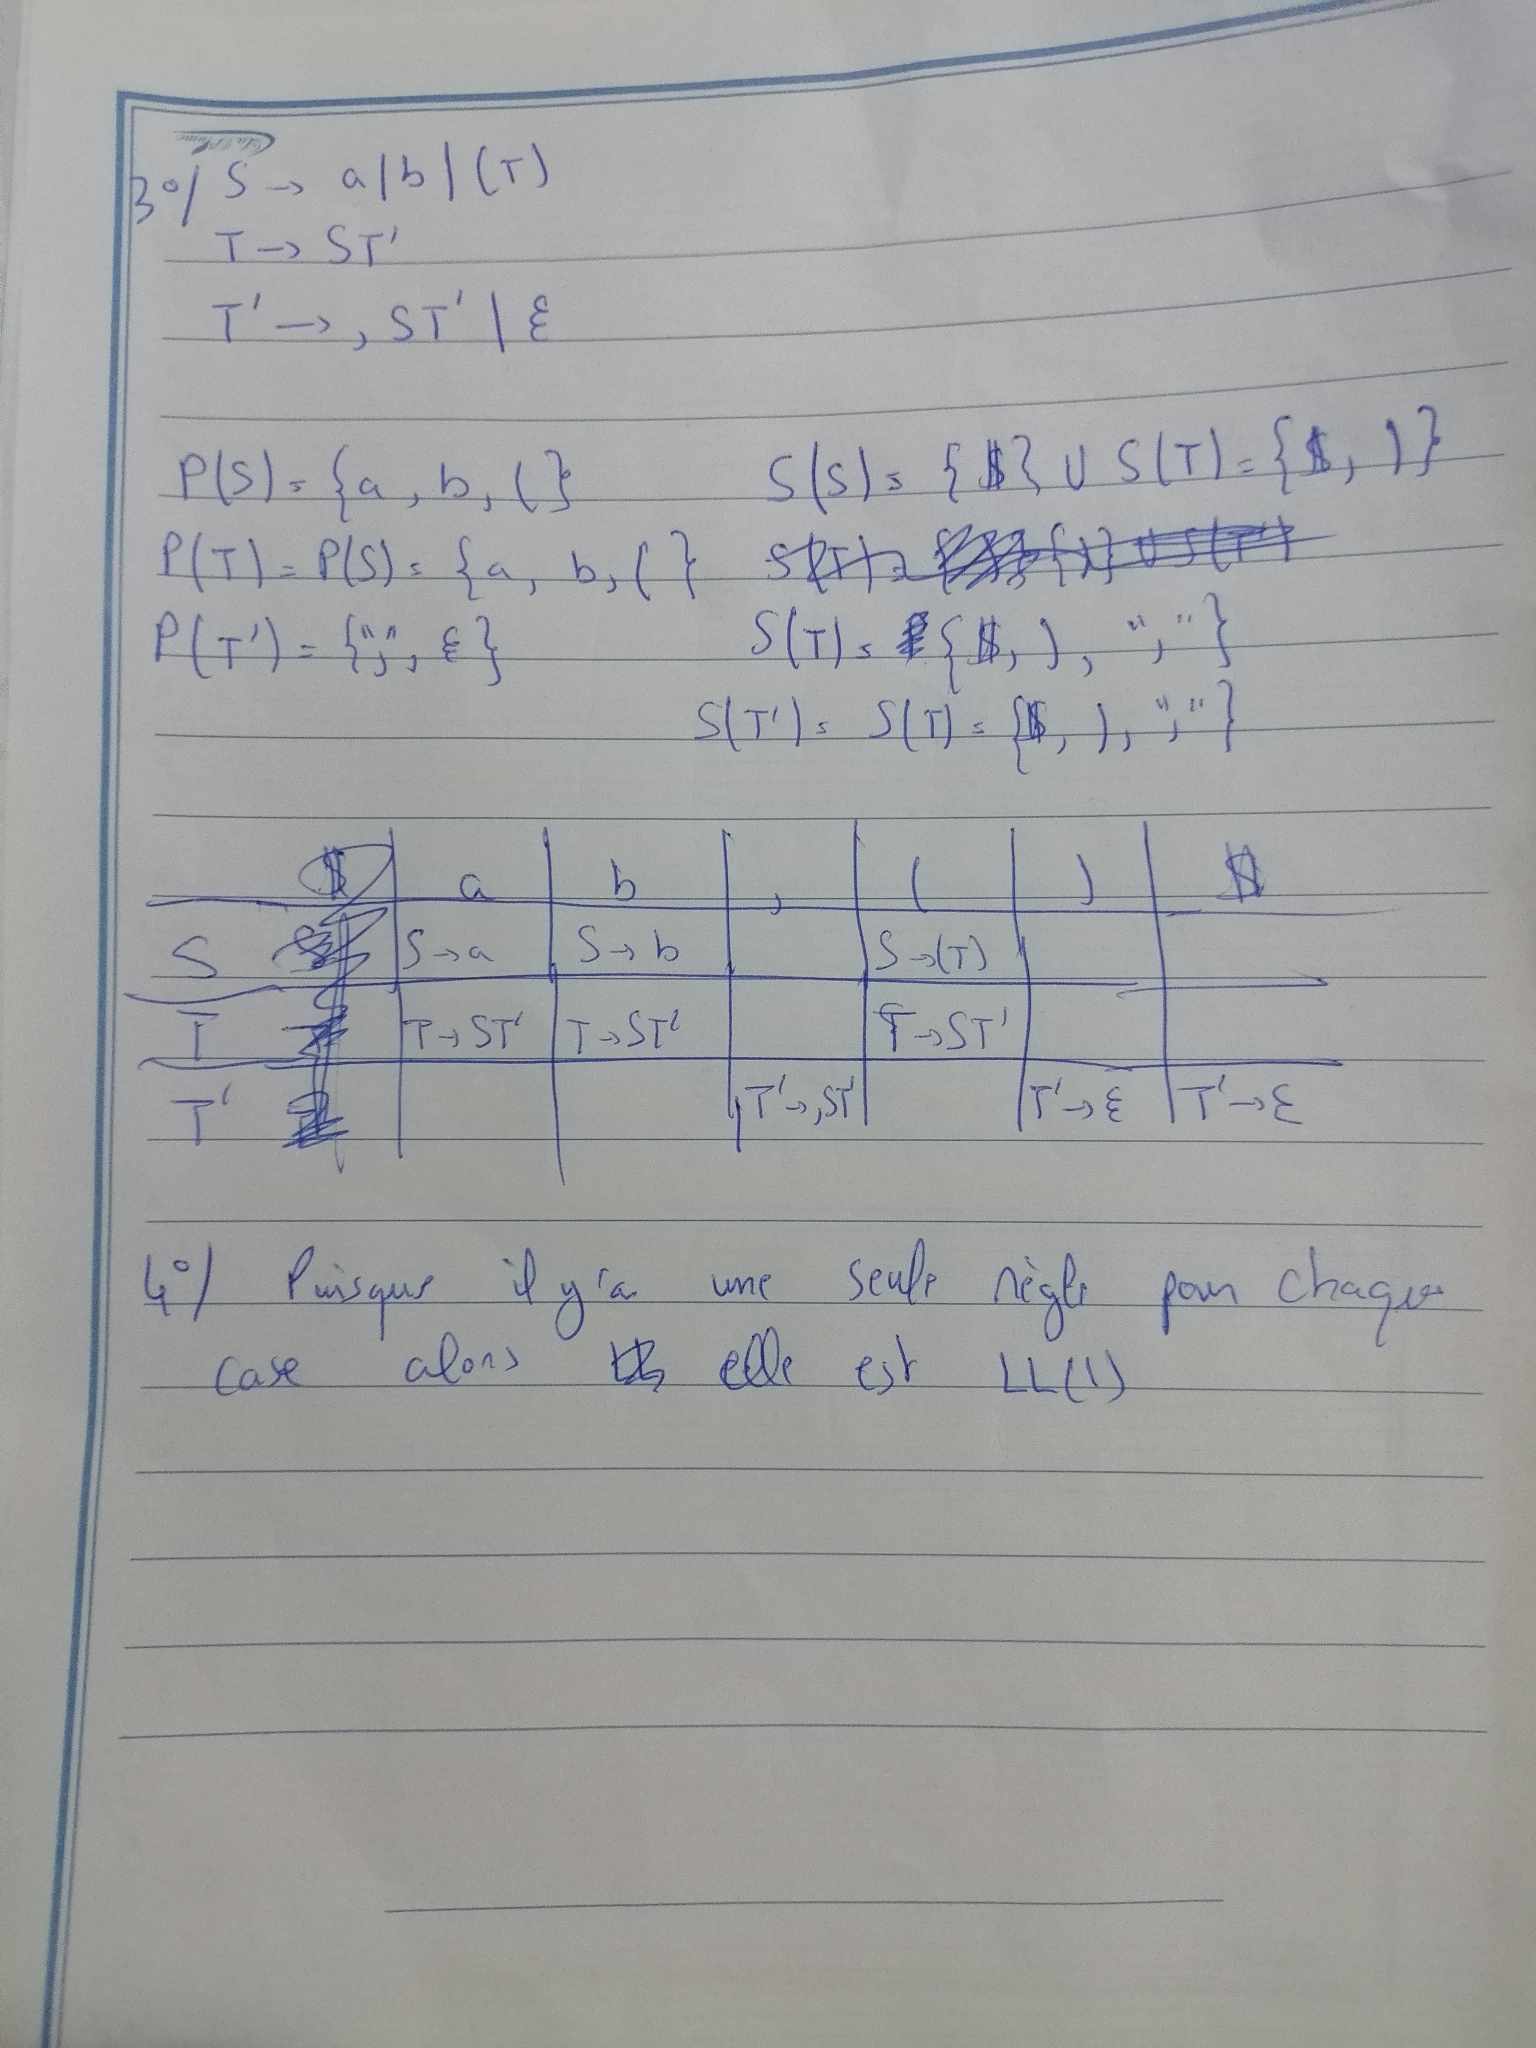 3°/ S → a | b | (T)
T → ST'
T' → , ST' | ε
P(S) = {a, b, (}    S(S) = {$} U S(T) = {$, )}
P(T) = P(S) = {a, b, (}
P(T') = {",", ε}    S(T) = {$, ), ","}
S(T') = S(T) = {$, ), ","}
a b , ( ) $
S S→a S→b S→(T)
T T→ST' T→ST' T→ST'
T' T'→,ST' T'→ε T'→ε
4°/ Puisque il y'a une seule règle pour chaque
case alors elle est LL(1)